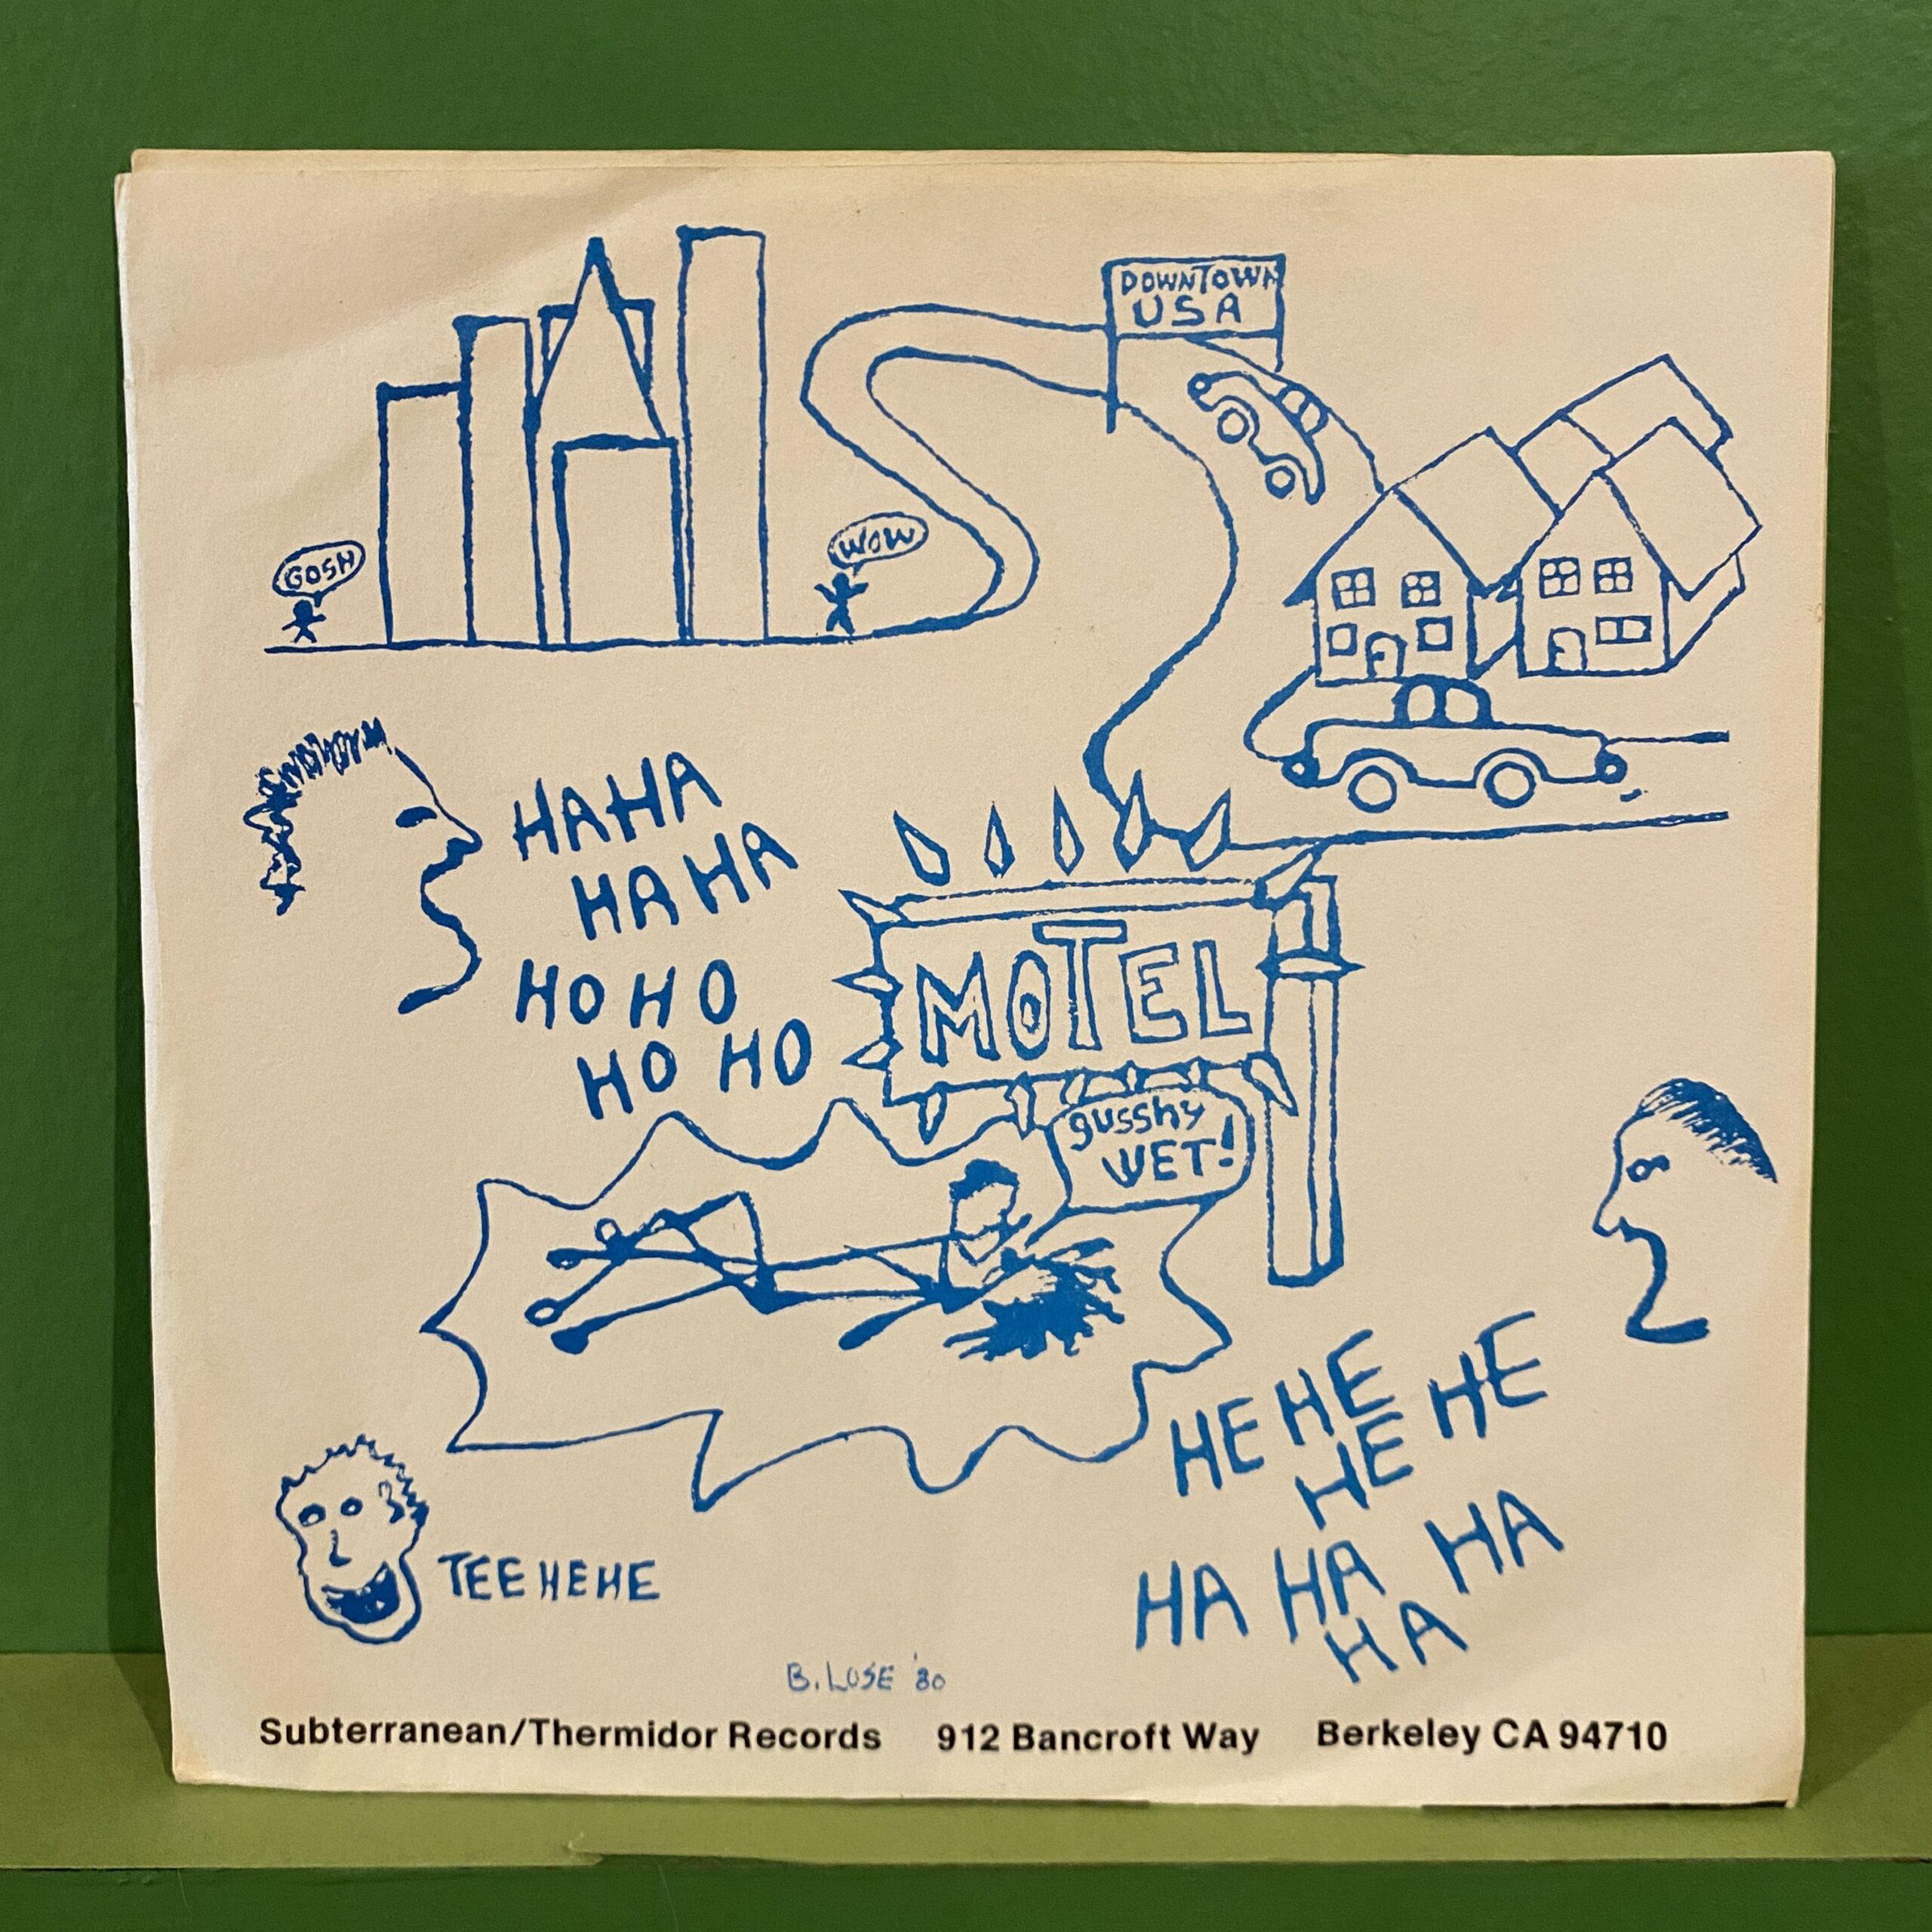 DOWNTOWN
USA
GOSH
WOW
HAHA
HAHA
HOHO
HO HO
MOTEL
gusshy
WET!
HE HE HE
HE
HA HA HA
HA
TEE HEHE
B. LOSE '80
Subterranean/Thermidor Records 912 Bancroft Way Berkeley CA 94710